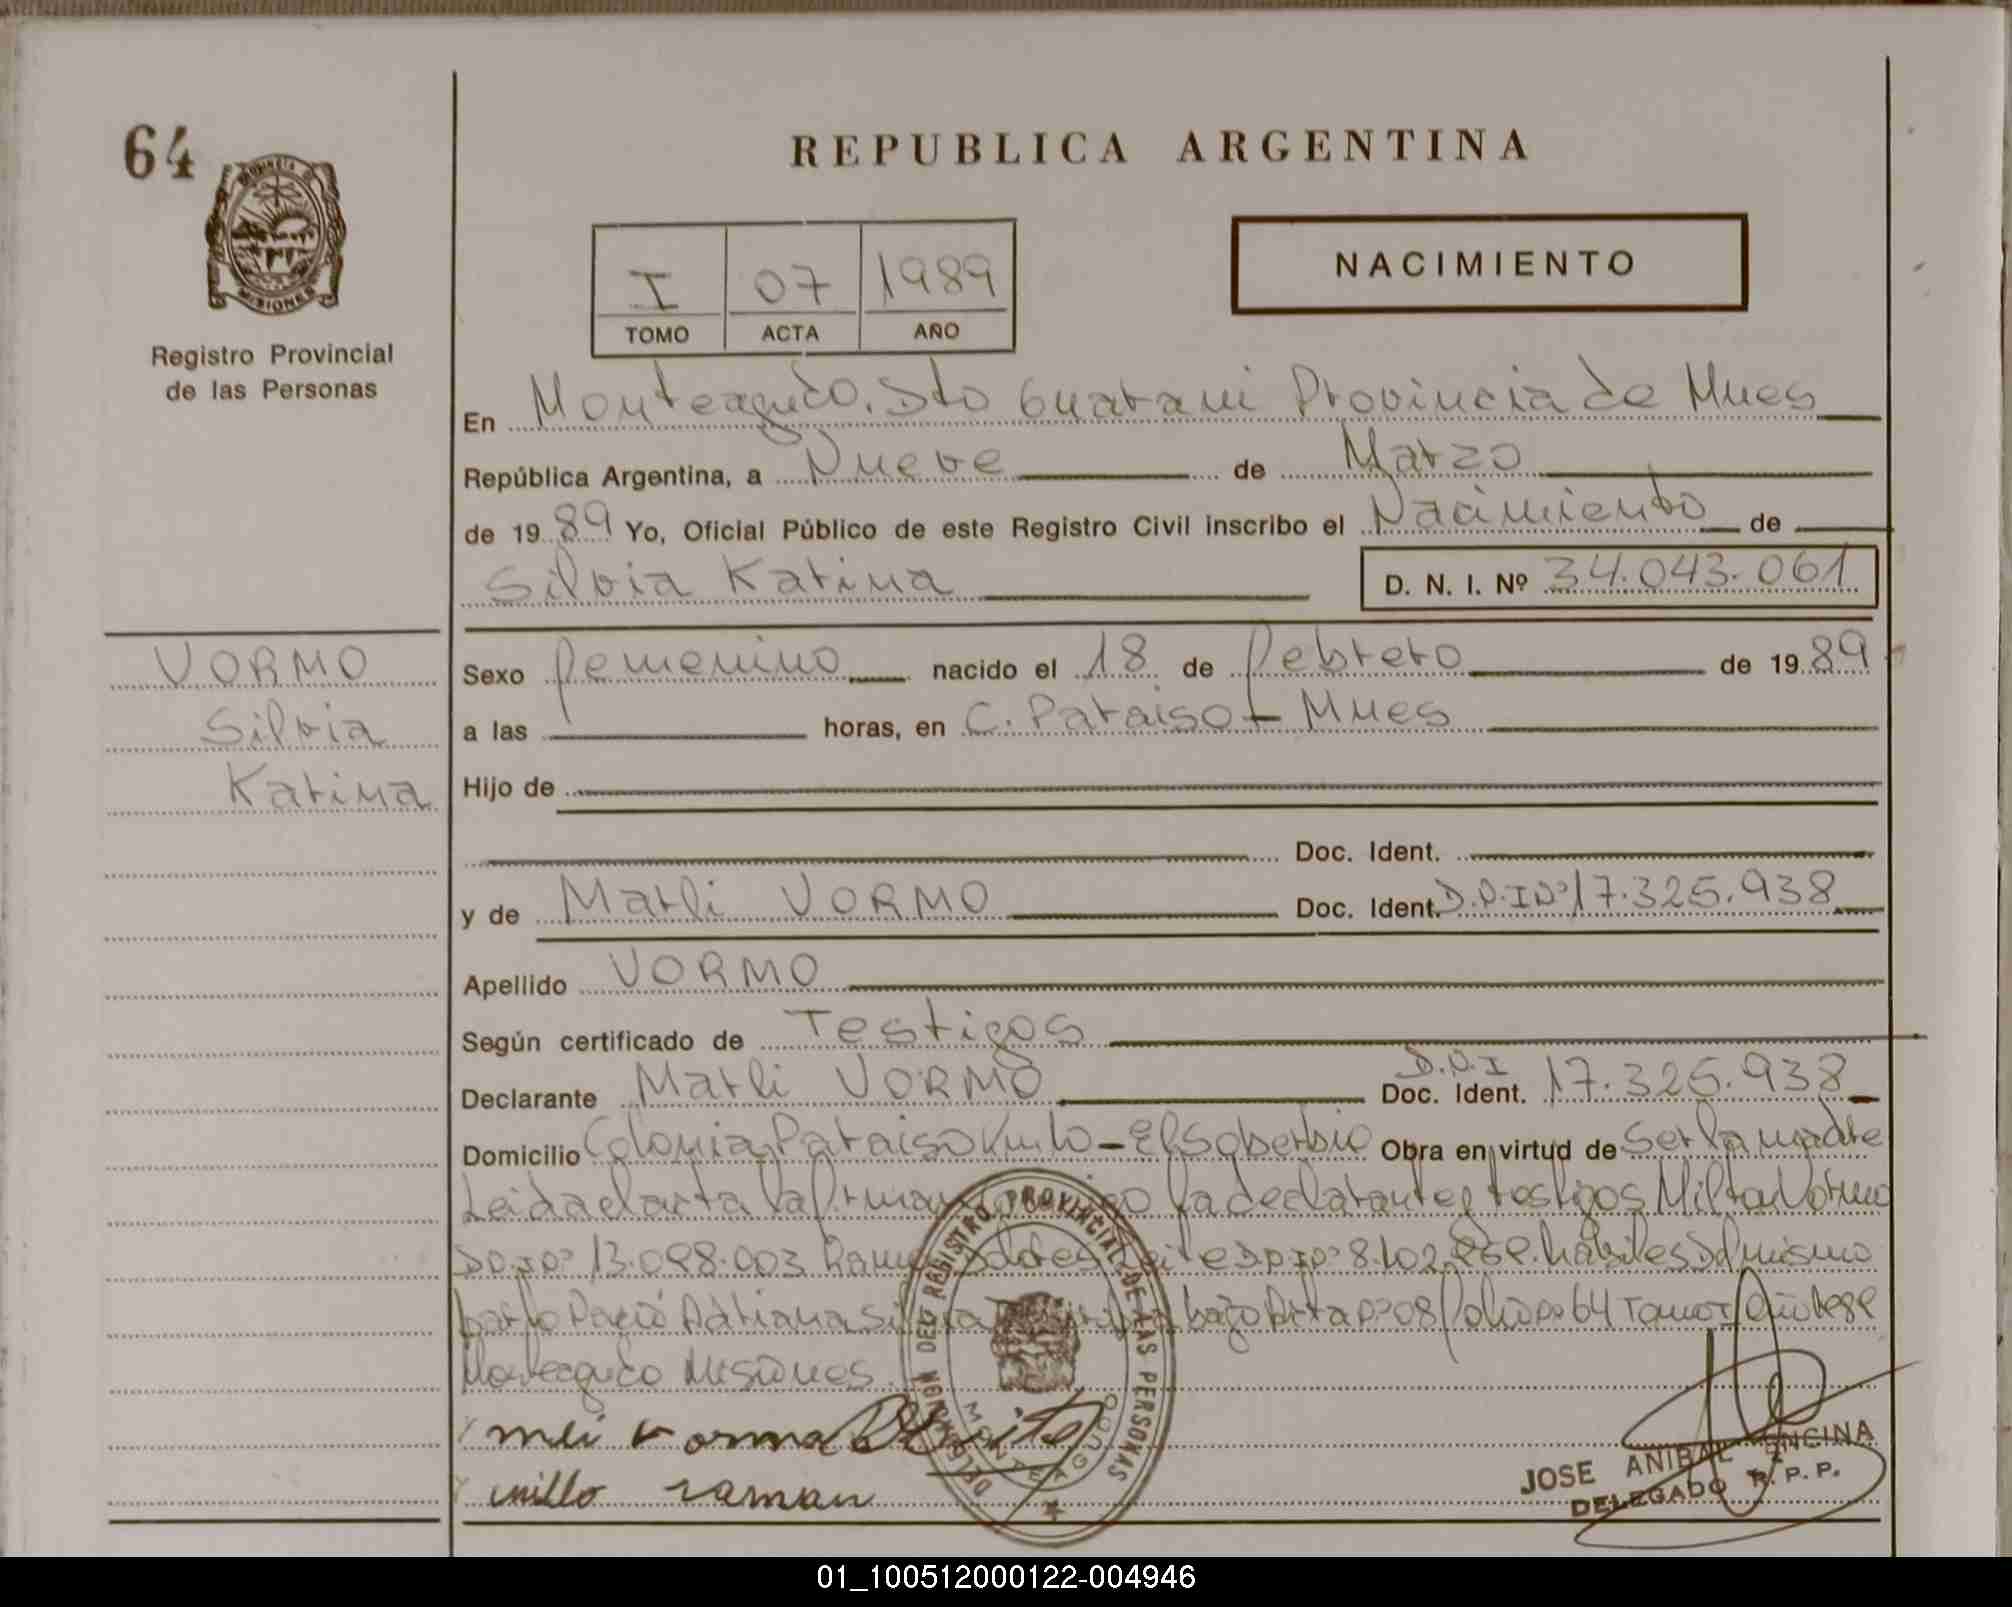 64
PROVINCIA DE
MISIONES
Registro Provincial
de las Personas
REPUBLICA ARGENTINA
I 07 1989
TOMO ACTA AÑO
NACIMIENTO
En Monteagudo. Dto Guarani Provincia de Mnes
República Argentina, a Nueve de Marzo
de 1989 Yo, Oficial Público de este Registro Civil inscribo el Nacimiento de
Silvia Karina
D. N. I. Nº 34.043.061
VORMO
Silvia
Karina
Sexo femenino nacido el 18 de febrero de 1989
a las horas, en C. Paraiso - Mnes
Hijo de
Doc. Ident.
y de Marli VORMO Doc. Ident. D.N.I Nº 17.325.938
Apellido VORMO
Según certificado de Testigos
Declarante Marli VORMO Doc. Ident. D.N.I 17.325.938
Domicilio Colonia Paraiso - El Soberbio Obra en virtud de Ser la madre
Leida el acta la firman la declarante y testigos Milton Vormo
DNI Nº 13.098.003 DNI Nº 8.102. habiles Del mismo
parto Nació Adriana Silvia bajo Acta Nº 08 folio Nº 64 Tomo I año 1989
Monteagudo Misiones
DELEGACION DEL REGISTRO PROVINCIAL DE LAS PERSONAS
MONTEAGUDO
JOSE ANIBAL ENCINA
DELEGADO R. P. P.
01_100512000122-004946